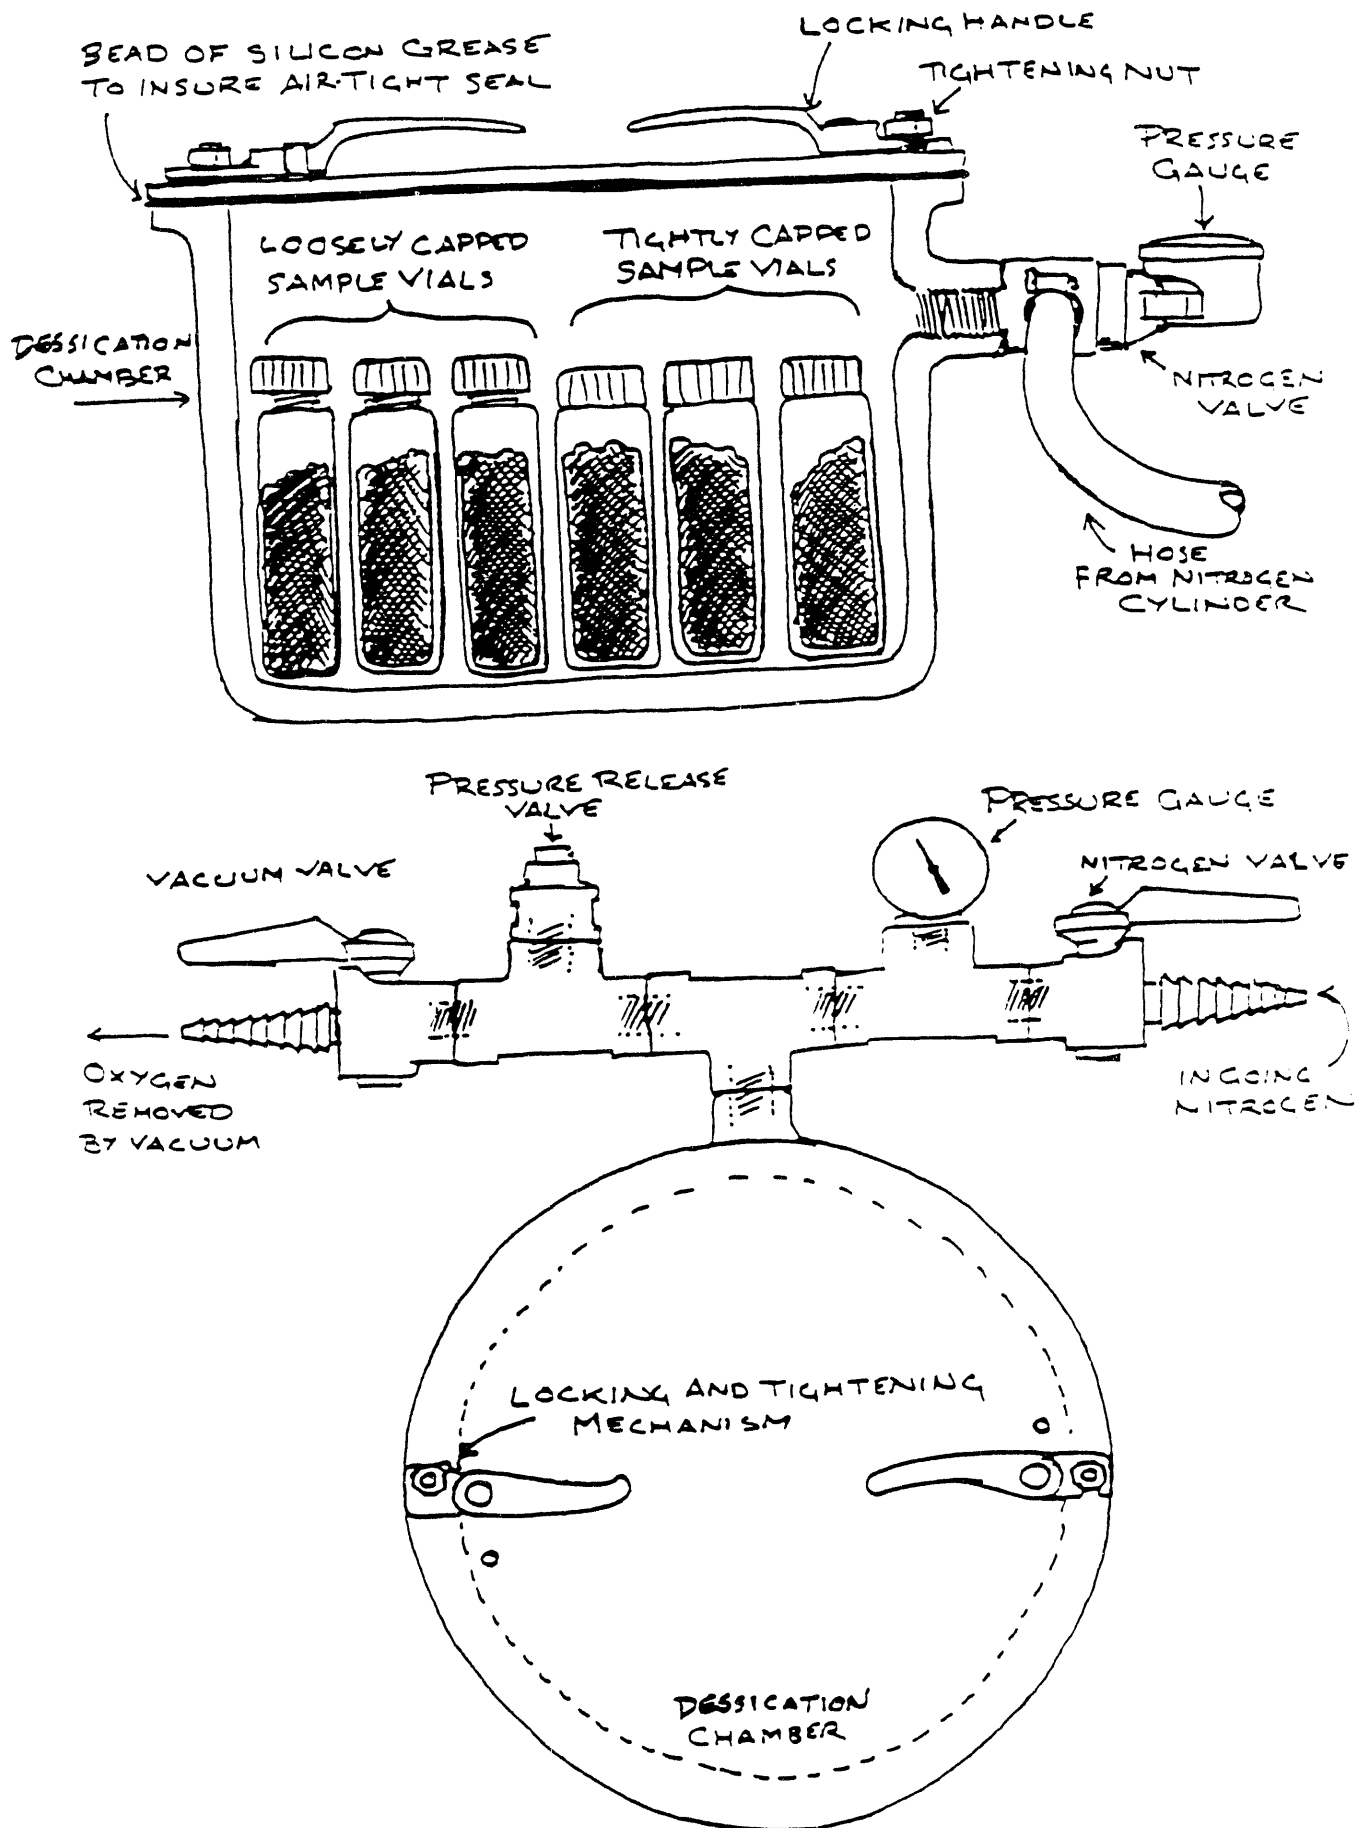 LOCKING HANDLE
BEAD OF SILICON GREASE
TO INSURE AIR-TIGHT SEAL
TIGHTENING NUT
PRESSURE
GAUGE
LOOSELY CAPPED
SAMPLE VIALS
TIGHTLY CAPPED
SAMPLE VIALS
DESSICATION
CHAMBER
NITROGEN
VALVE
HOSE
FROM NITROGEN
CYLINDER
PRESSURE RELEASE
VALVE
PRESSURE GAUGE
VACUUM VALVE
NITROGEN VALVE
OXYGEN
REMOVED
BY VACUUM
INGOING
NITROGEN
LOCKING AND TIGHTENING
MECHANISM
DESSICATION
CHAMBER